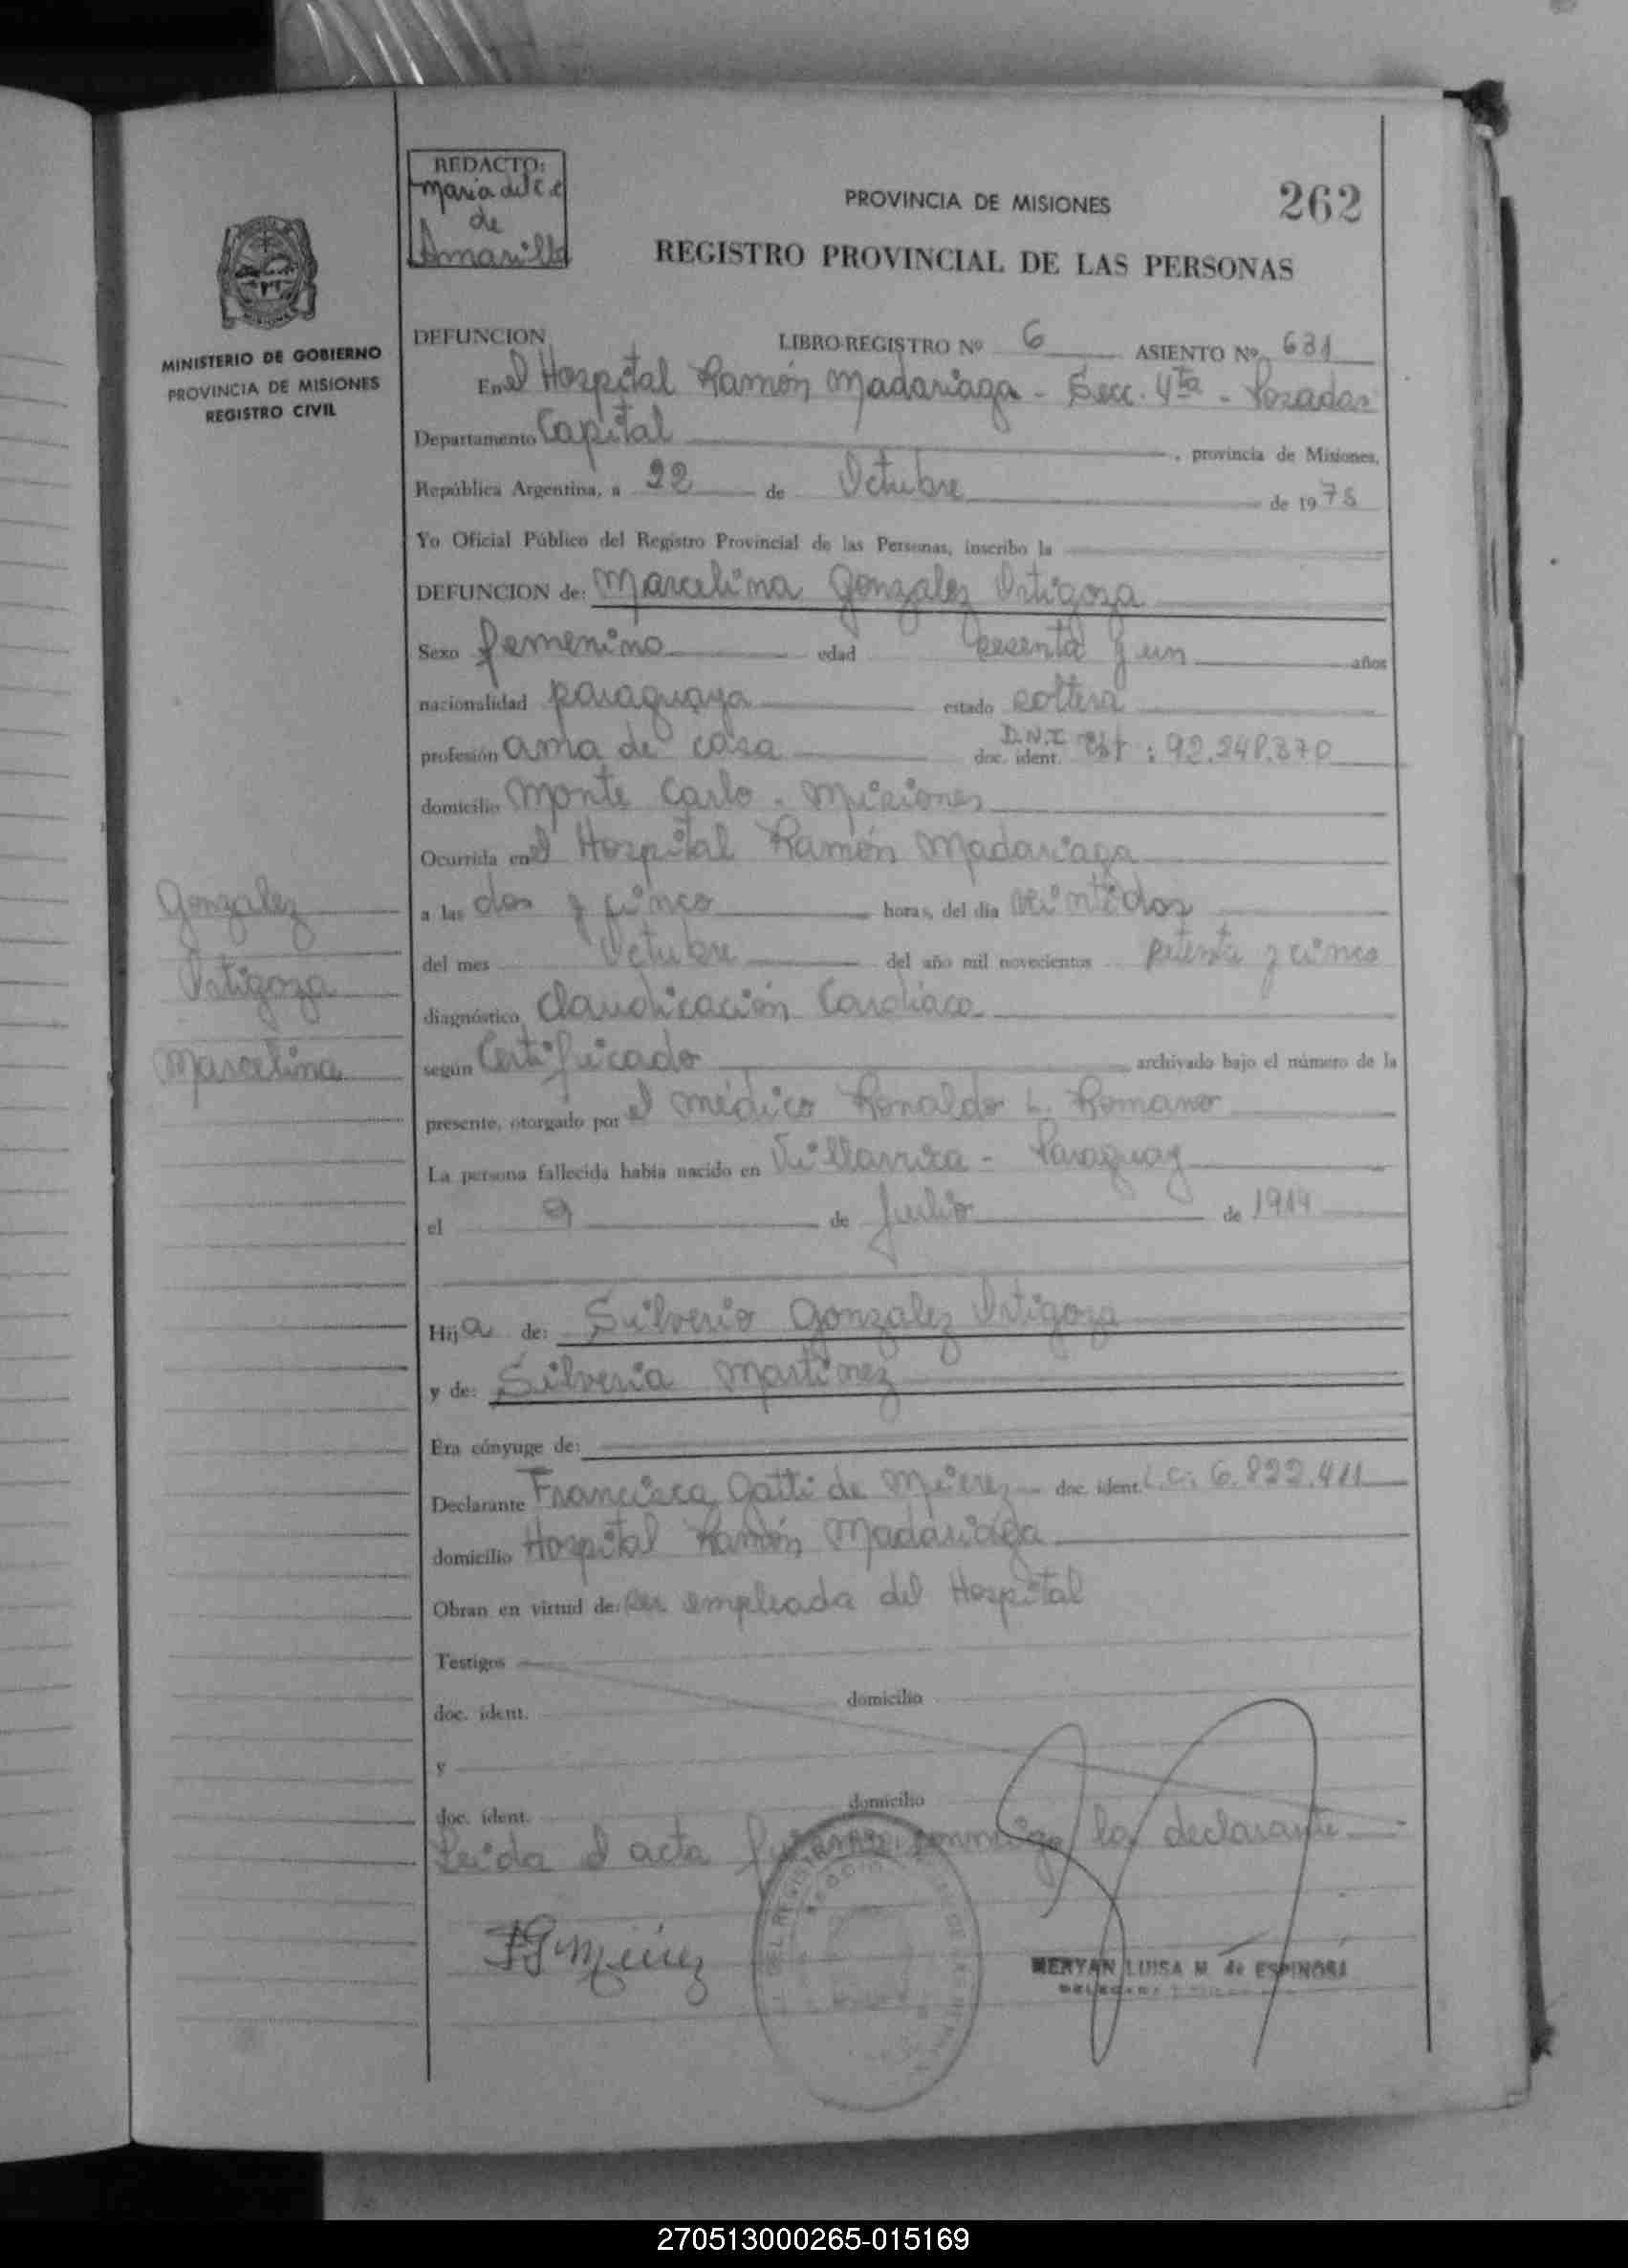 REDACTO:
maria del C. C.
de
Amarilla
PROVINCIA DE MISIONES
262
REGISTRO PROVINCIAL DE LAS PERSONAS
MINISTERIO DE GOBIERNO
PROVINCIA DE MISIONES
REGISTRO CIVIL
DEFUNCION LIBRO-REGISTRO Nº 6 ASIENTO Nº 631
En el Hospital Ramón Madariaga - Secc. 4ta - Posadas
Departamento Capital , provincia de Misiones,
República Argentina, a 22 de Octubre de 1975
Yo Oficial Público del Registro Provincial de las Personas, inscribo la
DEFUNCION de: Marcelina Gonzalez Ortigoza
Sexo femenino edad sesenta y un años
nacionalidad paraguaya estado soltera
profesión ama de casa doc. ident. D.N.I. Ext : 92.248.370
domicilio Monte Carlo - Misiones
Ocurrida en el Hospital Ramón Madariaga
a las dos y cinco horas, del día veintidos
del mes Octubre del año mil novecientos setenta y cinco
diagnóstico Claudicación Cardiaca
según Certificado archivado bajo el número de la
presente, otorgado por el médico Ronaldo L. Romano
La persona fallecida había nacido en Villarrica - Paraguay
el 9 de Julio de 1914
Gonzalez
Ortigoza
Marcelina
Hija de: Silverio Gonzalez Ortigoza
y de: Silveria Martinez
Era cónyuge de:
Declarante Francisca Gatti de Mierez doc. ident. L.C. 6.822.411
domicilio Hospital Ramón Madariaga
Obran en virtud de: ser empleada del Hospital
Testigos
doc. ident. domicilio
y
doc. ident. domicilio
Leida el acta firma conmigo la declarante
FGMierez
MERYAN LUISA M. de ESPINOSA
270513000265-015169